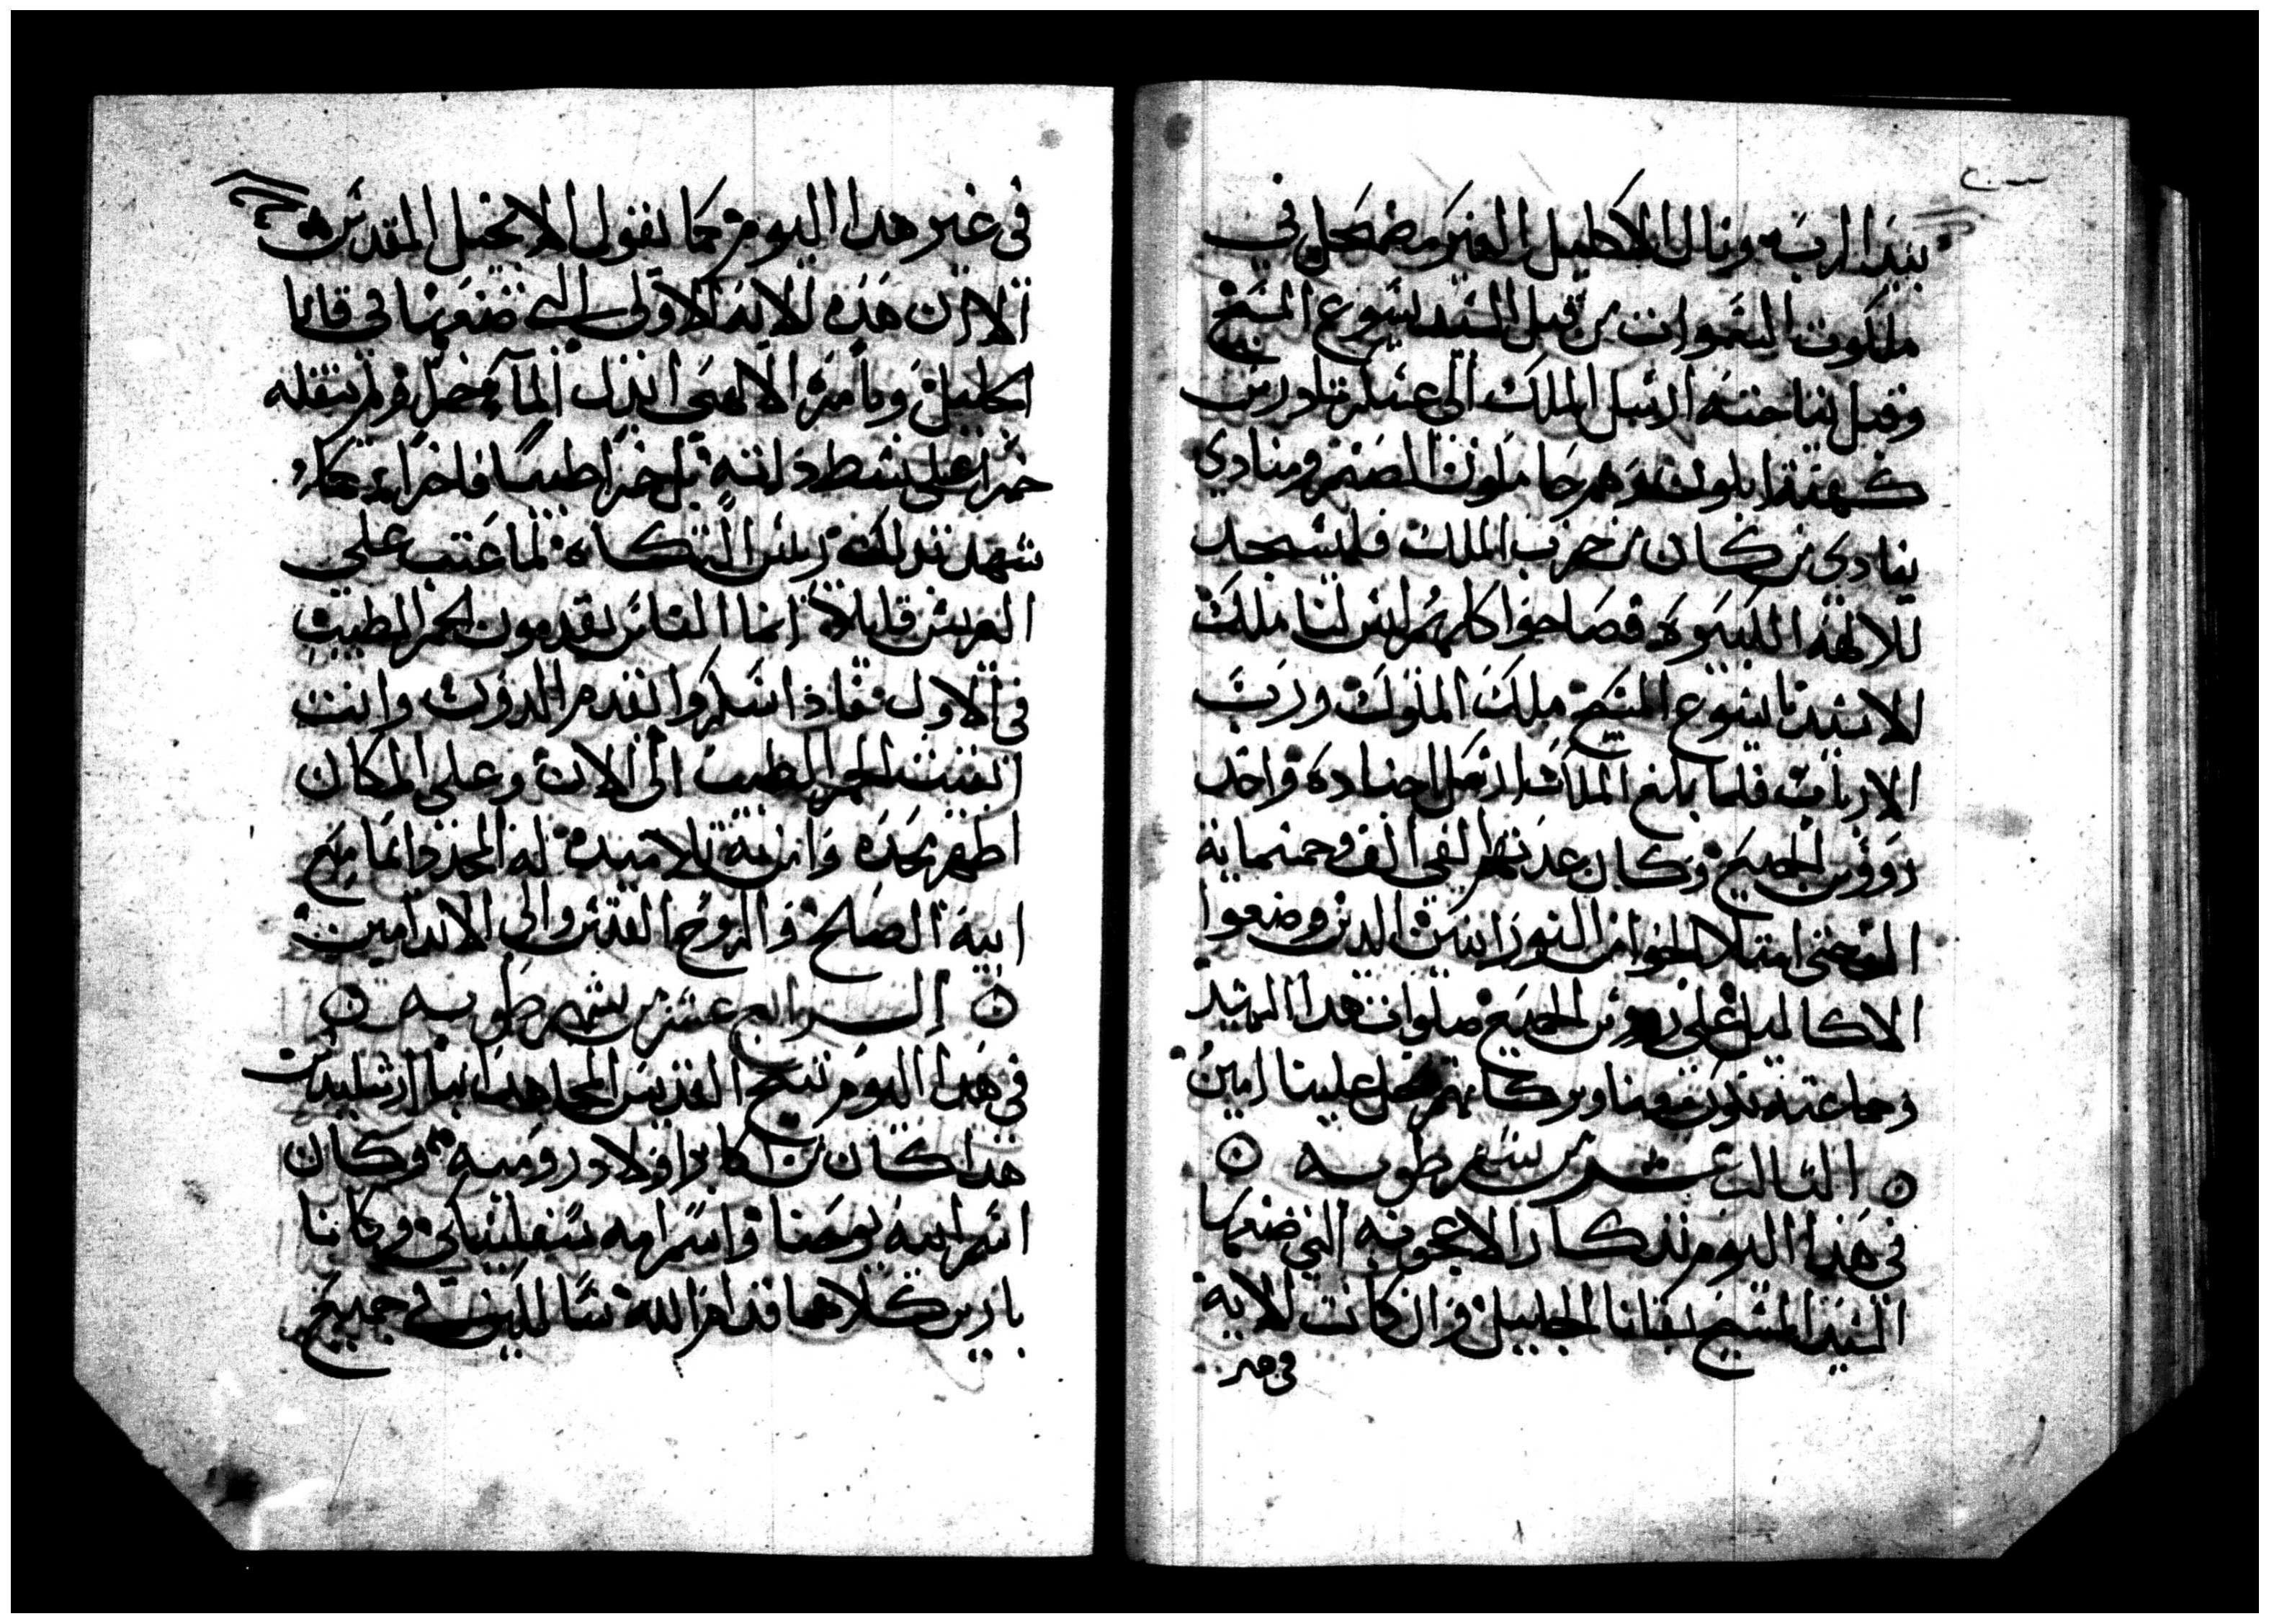 بيد الرب ونال الاكليل الغير مضمحل في
ملكوت السموات من قبل السيد يسوع المسيح
وقبل نياحته ارسل الملك الى عسكر تادرس
كهنة ابلون وهم حاملون الصنم ومنادي
ينادي من كان من حزب الملك فليسجد
للالهة فصاحوا كلهم ليس لنا ملك
الا سيدنا يسوع المسيح ملك الملوك ورب
الارباب فلما بلغ الملك ارسل اجناده واخد
رووس الجميع وكان عدتهم الفي الف وخمسماية
امتلا الجوا من النورانيين الدين وضعوا
الاكاليل على رووس الجميع صلوات هدا الشهيد
وجماعته تكون معنا وبركاتهم تحل علينا امين
الثالث عشر من شهر طوبه
في هذا اليوم تذكار الاعجوبه التي صنعها
السيد المسيح بقانا الجليل وان كانت الايه
في غير
في غير هدا اليوم كما يقول الانجيل المقدس
الا ان هذه الايه الاولى التي صنعها في قانا
الجليل وبامره الالهى ابدل الماء خمرا ولم ينقله
خمرا على بسط داته بل خمرا طيبا فاخرا كما
شهد بدلك ريس المتكاه لما عتب على
العريس قايلا انما الناس يقدمون الخمر الطيب
في الاول فاذا سكروا تقدم الدون وانت
ابقيت الخمر الطيب الى الان وعلى المكان
اظهر مجده وامن به تلاميده له المجد دايما مع
ابيه الصالح والروح القدس والى الابد امين
الرابع عشر من شهر طوبه
في هدا اليوم تنيح القديس المجاهد انبا ارشليدس
هدا كان من اكابر اولاد روميه وكان
اسم ابيه يوحنا واسم امه وكانا
بارين كلاهما قدام الله سالكين في جميع